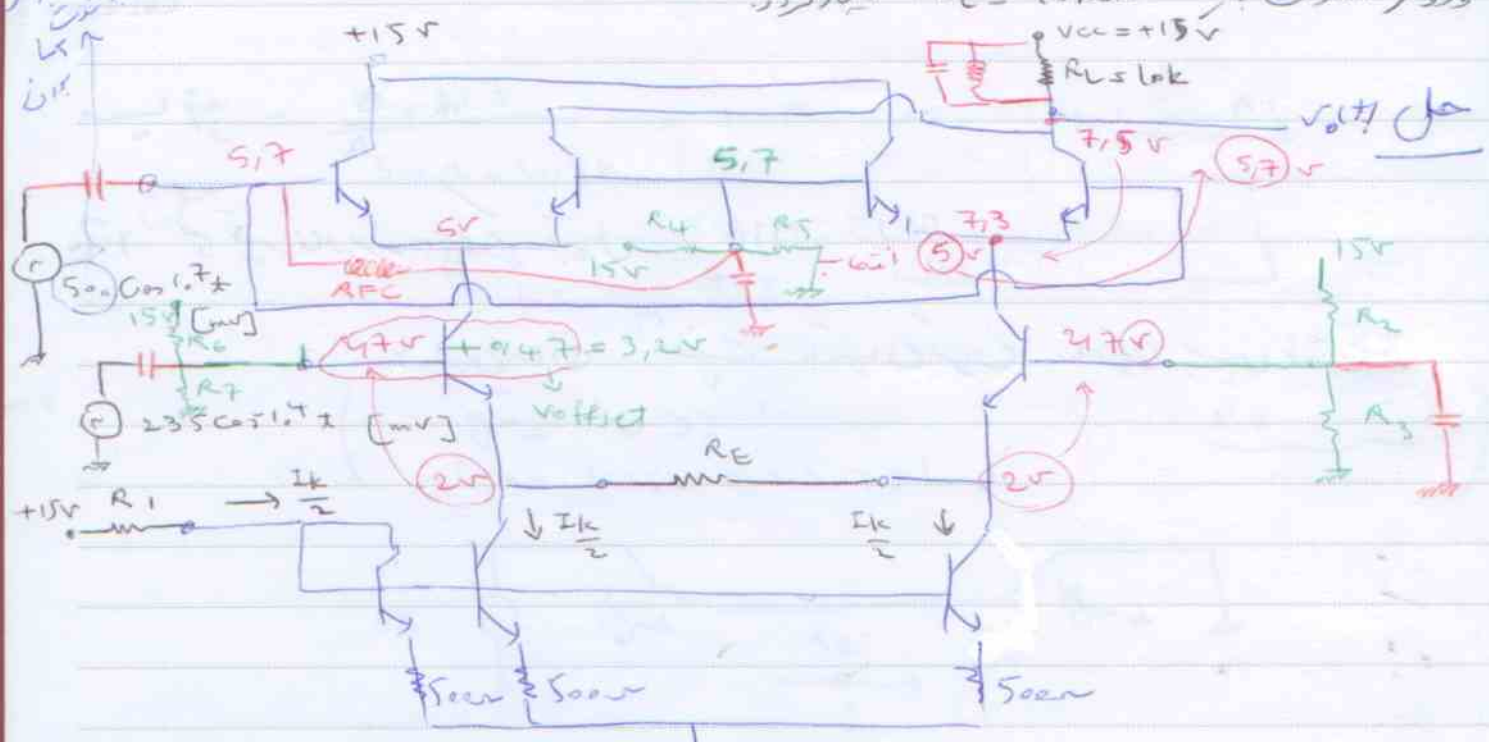 +15v
Vcc = +15v
RL = 10k
vo(t)
حل
5,7
5,7
7,5 v
5,7 v
5v
R4
R5
7,3
5 v
15v
15v
RFC
500 Cos 10^7 t
[mv]
15v
R6
R2
2,7v + 0,47 = 3,2v
2,7 v
R7
Voffset
R3
235 cos 10^4 t [mv]
RE
2v
2v
+15v R1 → Ik/2
↓ Ik/2
Ik/2 ↓
500Ω
500Ω
500Ω